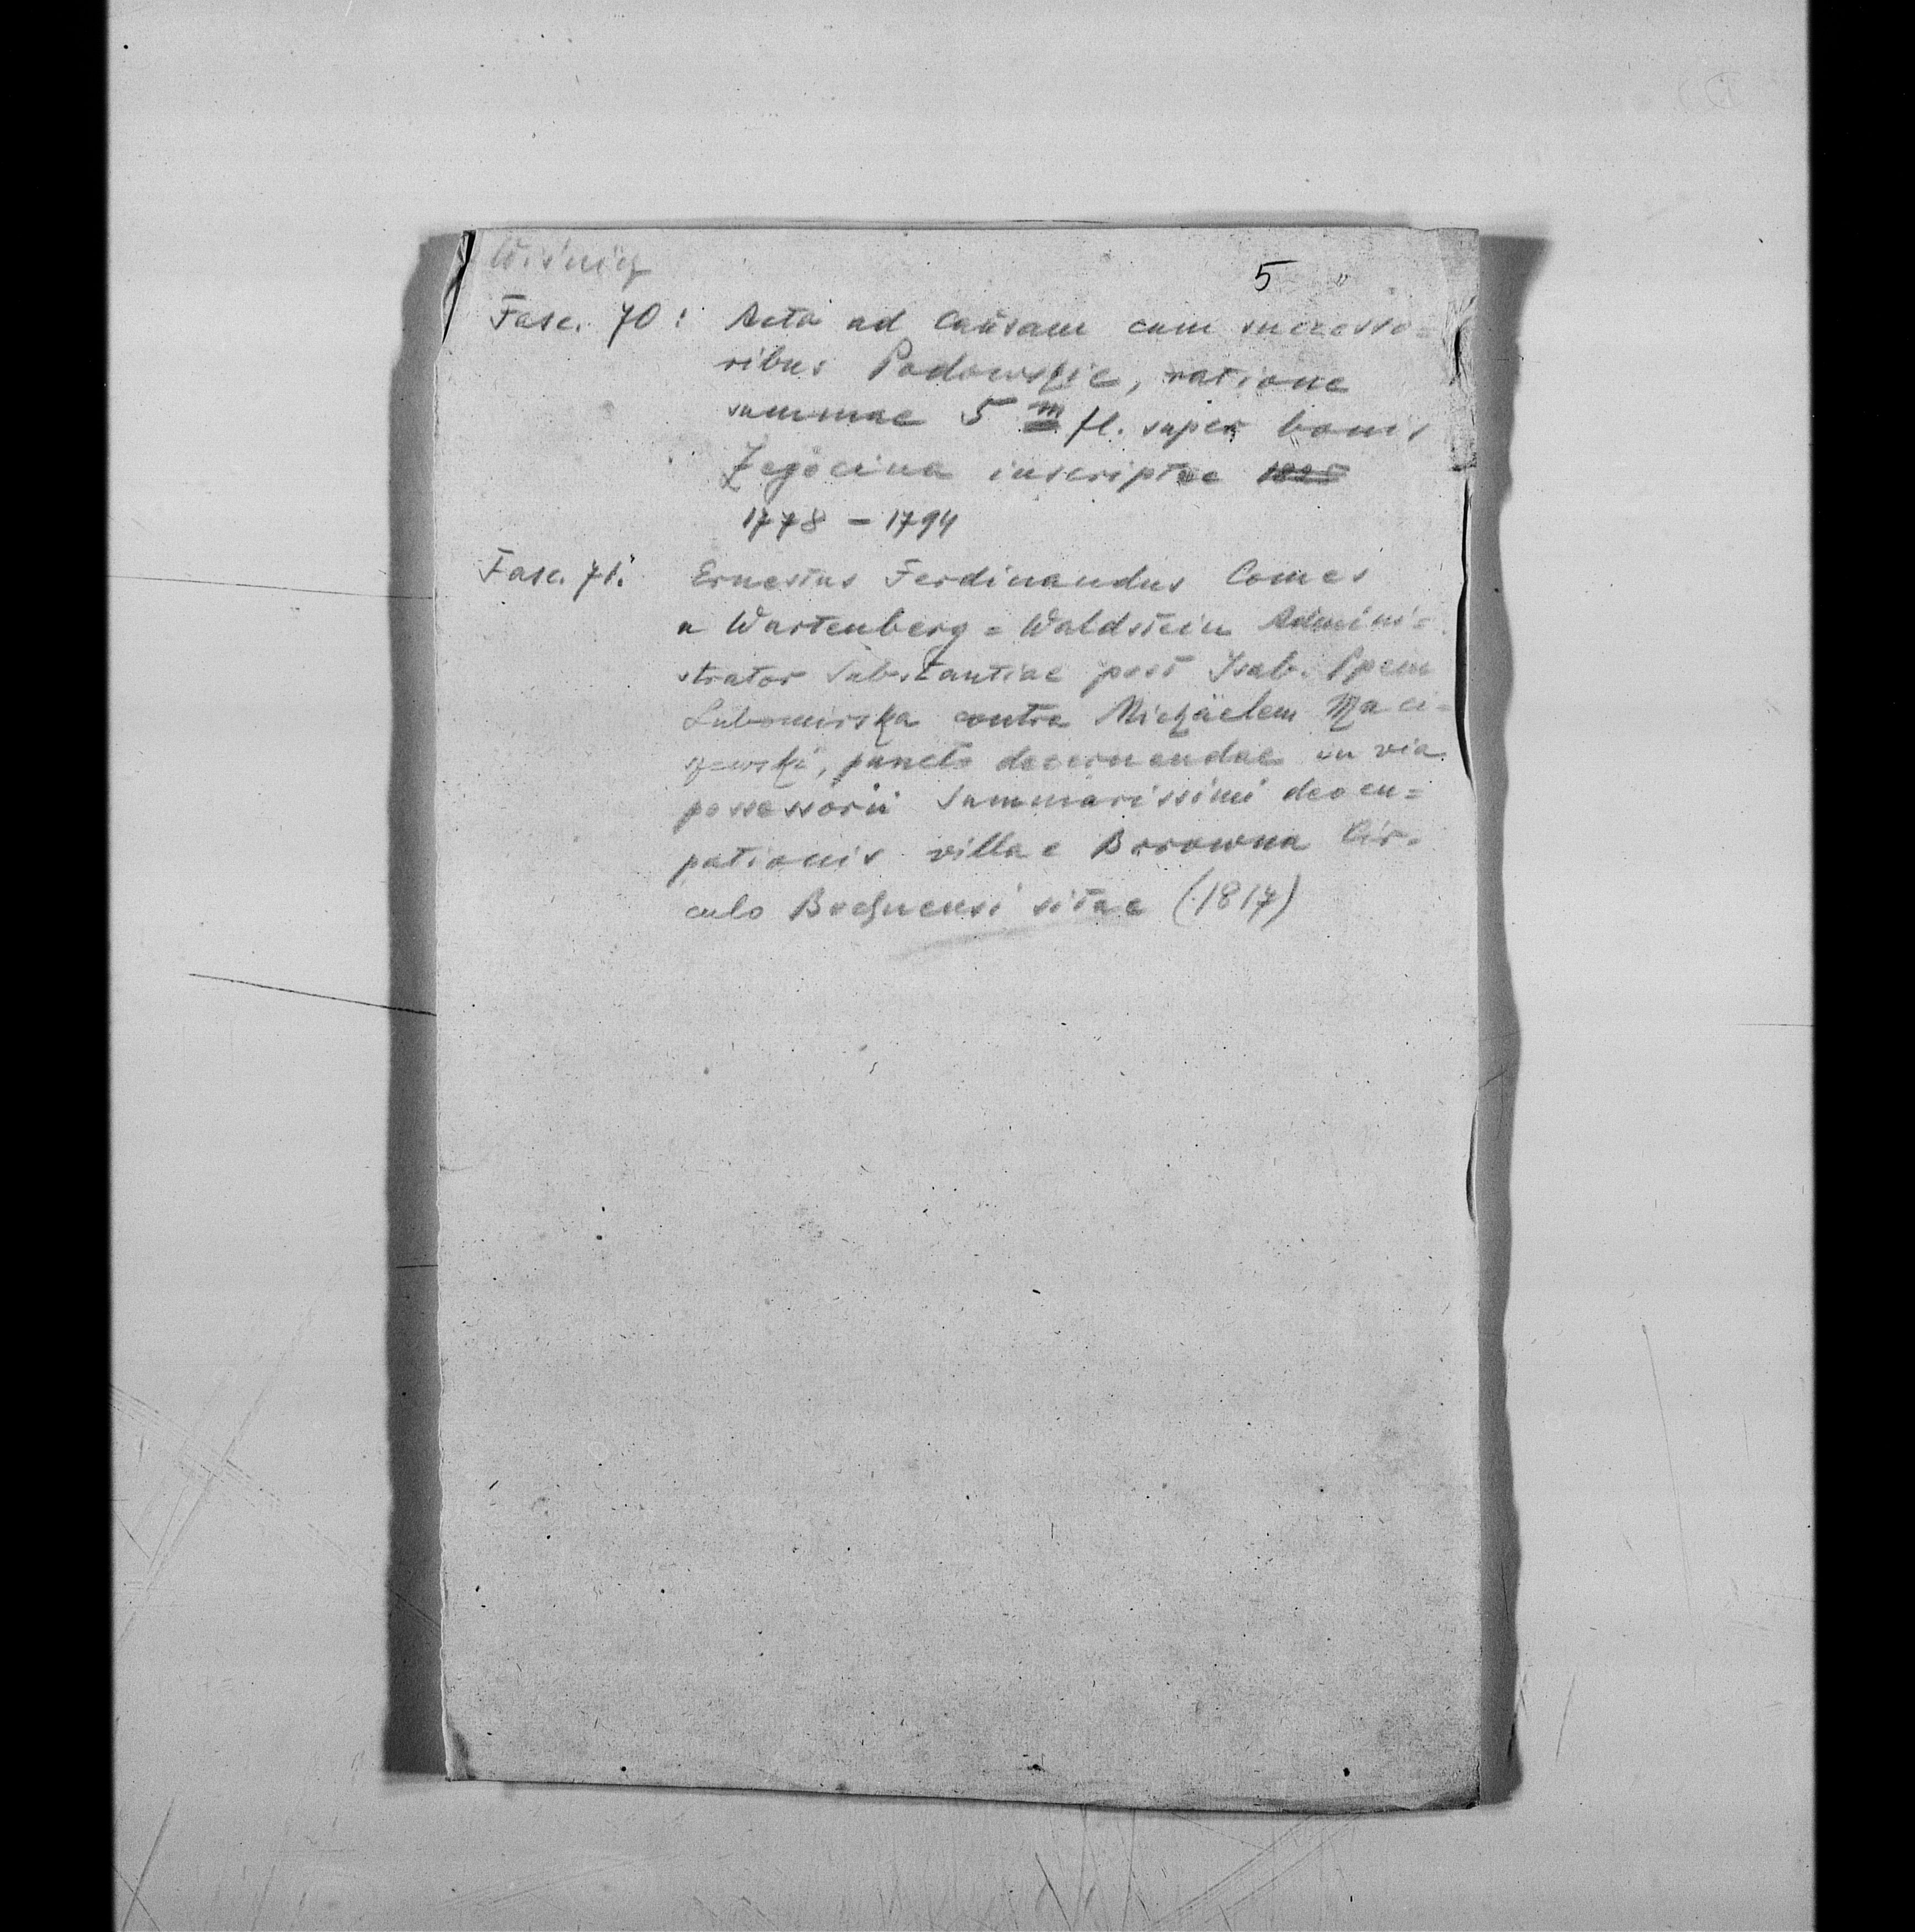 Wiśnicz
5
Fasc. 70: Acta ad Causam cum successo=
ribus Padowskie, ratione
summae 5 m fl. super bonis
Żegocina inscriptae 1825
1778 – 1794
Fasc. 71. Ernestus Ferdinandus Comes
a Wartenberg = Waldstein Admini=
strator Substantiae post Isab. Ppem
Lubomirska contra Michaelem Maci=
szewski, puncto decernendae in via
possessorii Summarissimi deocu=
pationis villae Borowna Cir=
culo Bochnensi sitae (1817)